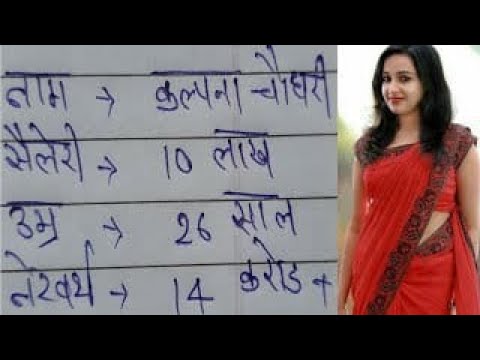 नाम → कल्पना चौधरी
सैलेरी → 10 लाख
उम्र → 26 साल
नेटवर्थ → 14 करोड +